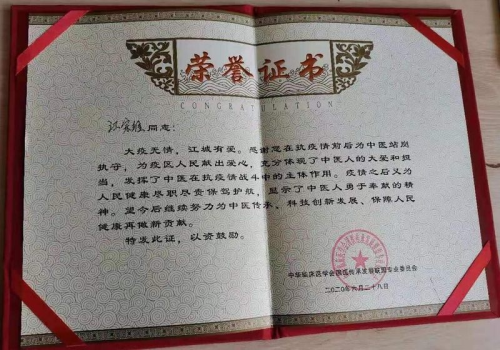 荣誉证书
CONGRATULATION
同志:
大疫无情,江城有爱。感谢您在抗疫情前后为中医站岗
执守,为疫区人民献出爱心,充分体现了中医人的大爱和担
当,发挥了中医在抗疫情战斗中的主体作用。疫情之后又为
人民健康尽职尽责保驾护航,显示了中医人勇于奉献的精
神。望今后继续努力为中医传承,科技创新发展、保障人民
健康再做新贡献。
特发此证,以资鼓励。
中华临床医学会国医传承发展联盟专业委员会
二〇二〇年六月二十八日